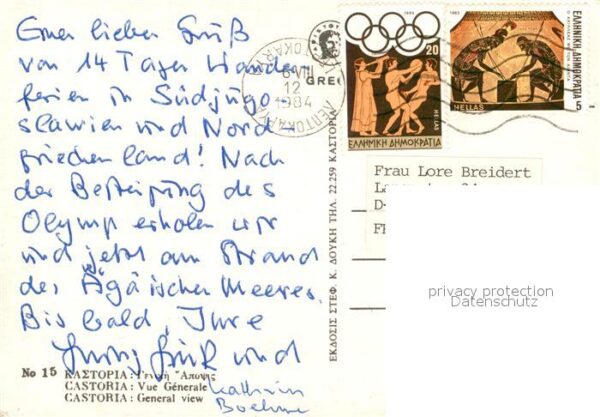 Einen lieben Gruß
von 14 Tagen Wander-
ferien in Südjugo-
slawien und Nord-
griechenland! Nach
der Besteigung des
Olymp erholen wir
uns jetzt am Strand
des Ägäischen Meeres.
Bis bald, Ihre
und
Kathrin
Boehme
No 15 ΚΑΣΤΟΡΙΑ: Γενική Ἄποψις
CASTORIA: Vue Générale
CASTORIA: General view
ΕΚΔΟΣΙΣ ΣΤΕΦ. Κ. ΔΟΥΚΗ ΤΗΛ. 22.259 ΚΑΣΤΟΡΙΑ
GREE
6 VIII
12
1984
ΛΕΠΤΟΚΑΡΥΑ
20
HELLAS
ΕΛΛΗΝΙΚΗ ΔΗΜΟΚΡΑΤΙΑ
1983
HELLAS
ΕΛΛΗΝΙΚΗ ΔΗΜΟΚΡΑΤΙΑ
5
Frau Lore Breidert
D-
privacy protection
Datenschutz